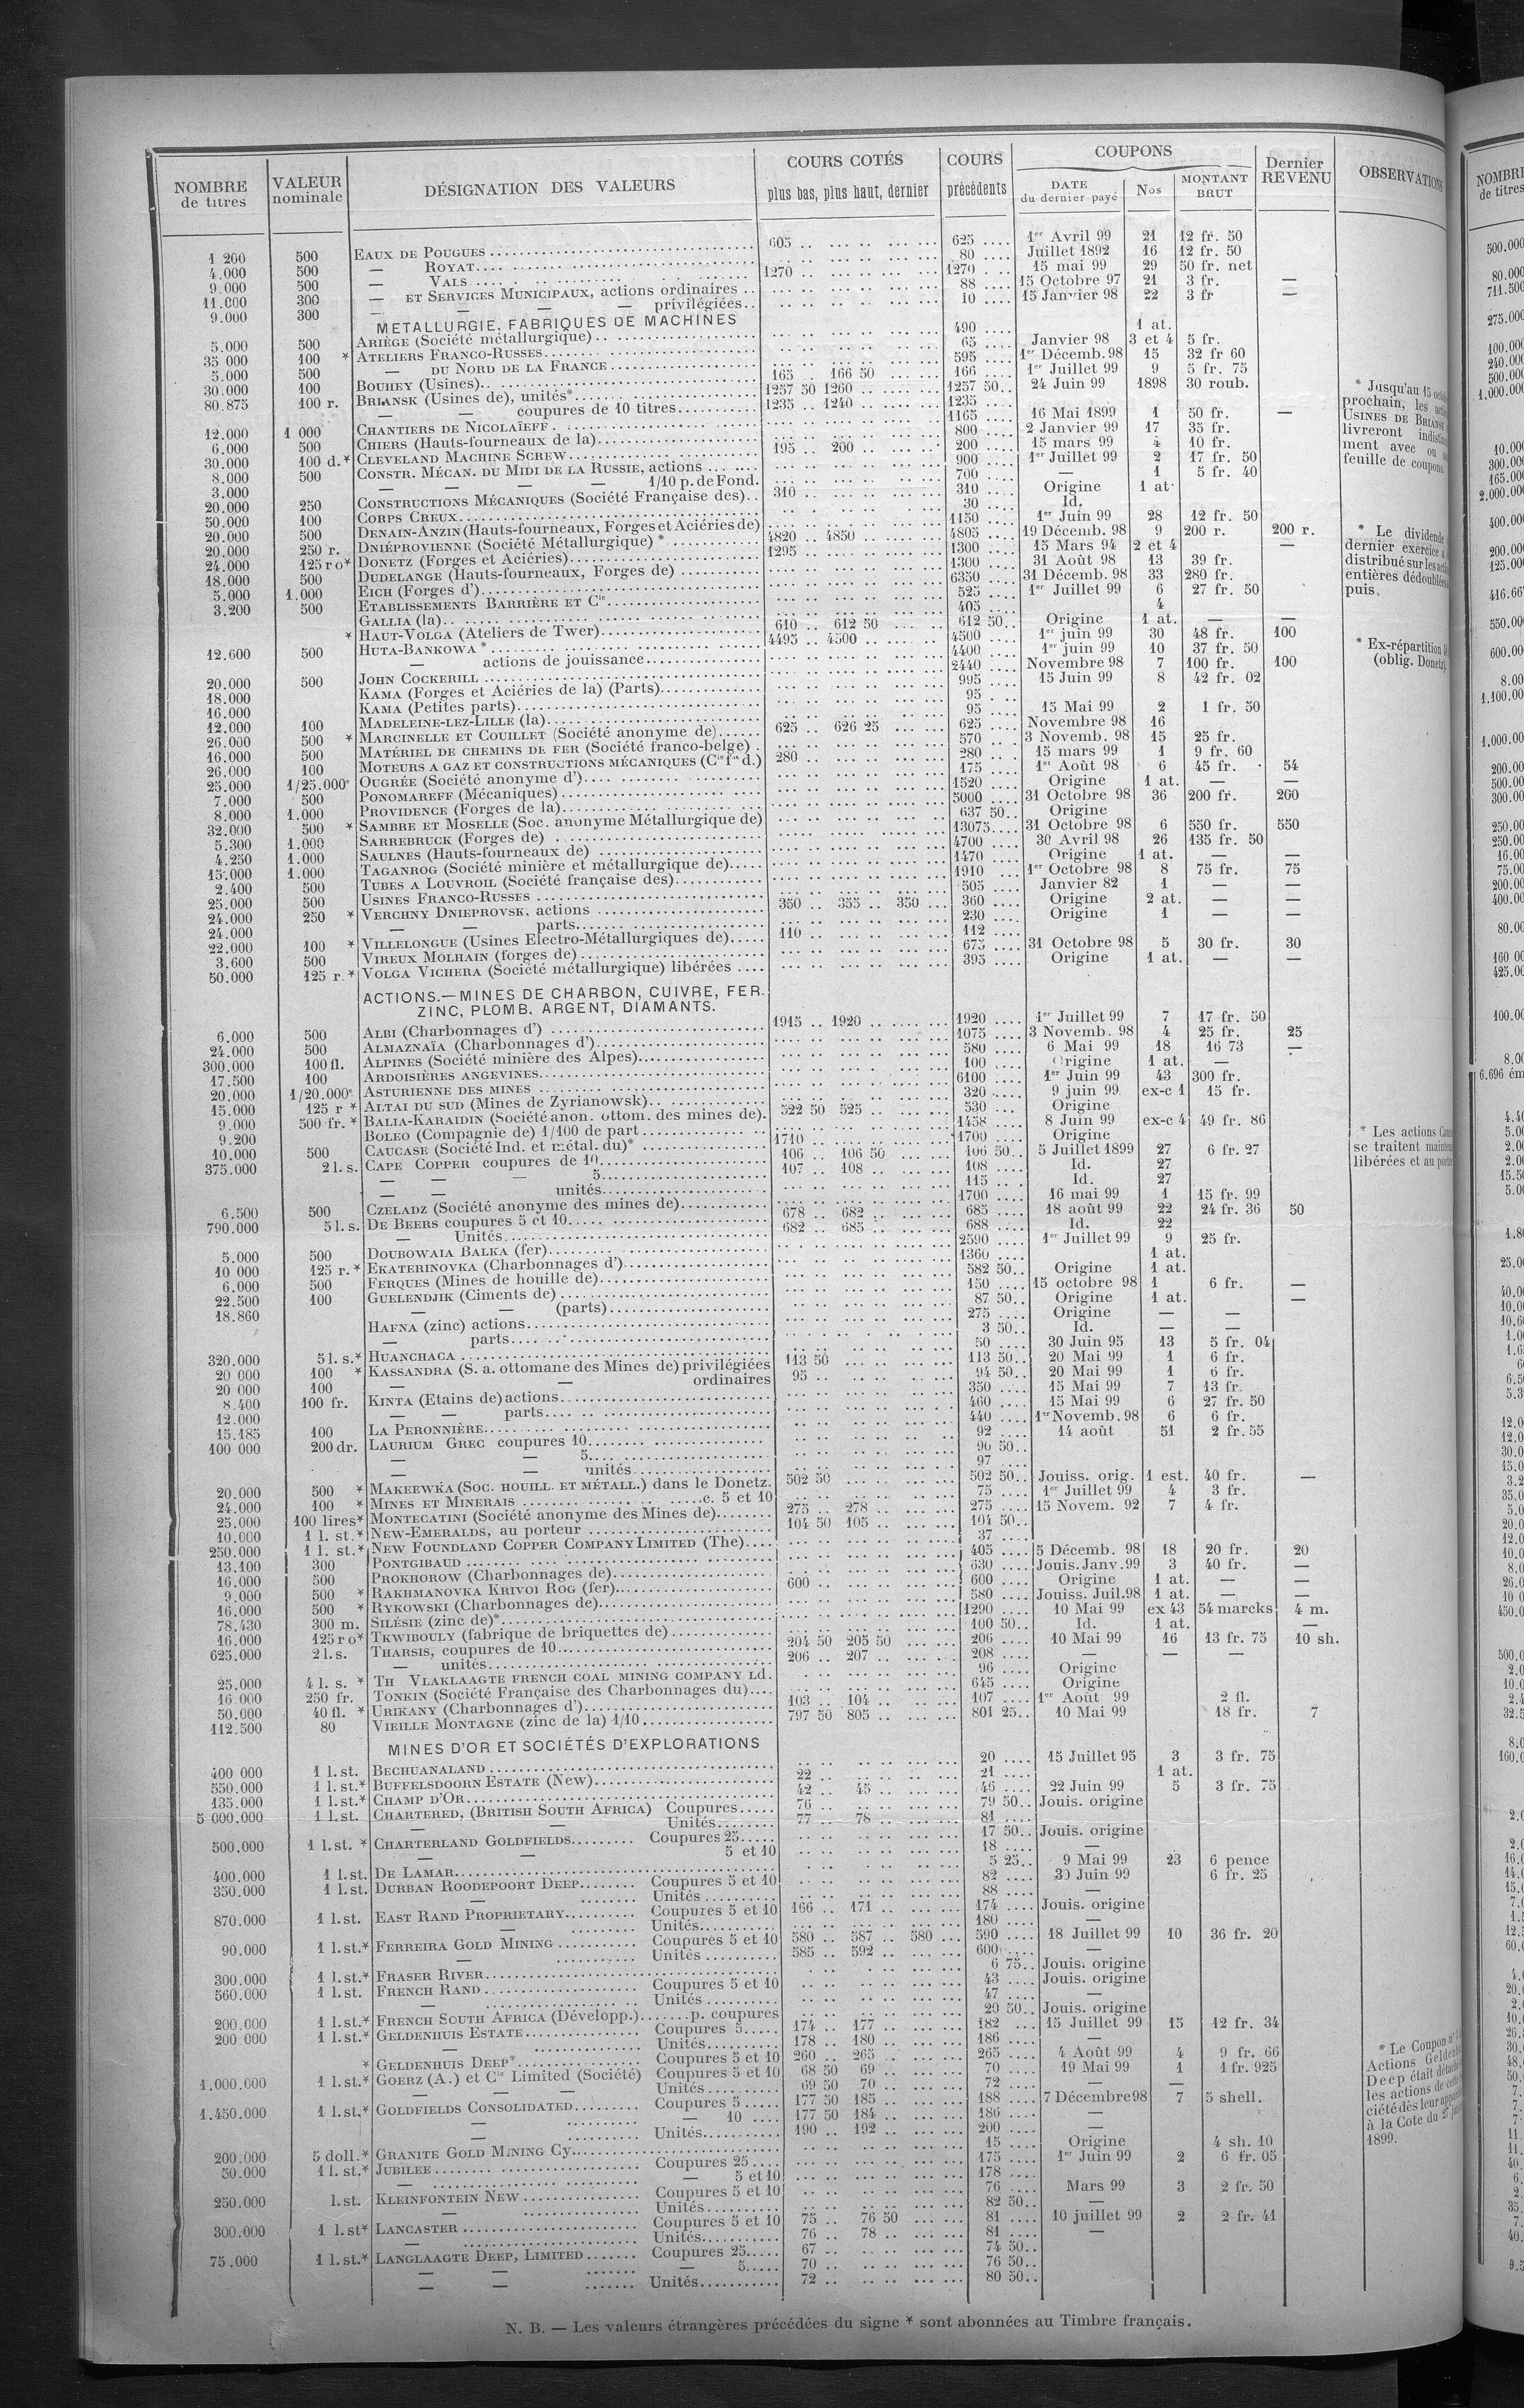 NOMBRE de titres | VALEUR nominale | DÉSIGNATION DES VALEURS | COURS COTÉS plus bas, plus haut, dernier | COURS précédents | COUPONS DATE du dernier payé | Nos | MONTANT BRUT | Dernier REVENU | OBSERVATIONS
1 200 500 EAUX DE POUGUES 605 625 1er Avril 99 21 12 fr. 50
4.000 500 — ROYAT 80 Juillet 1892 16 12 fr. 50
9.000 500 — VALS 1270 1270 15 mai 99 29 50 fr. net
11.000 300 — ET SERVICES MUNICIPAUX, actions ordinaires 88 15 Octobre 97 21 3 fr. —
9.000 300 — — — privilégiées 10 15 Janvier 98 22 3 fr —
METALLURGIE, FABRIQUES DE MACHINES
5.000 500 ARIÈGE (Société métallurgique) 490 1 at.
35 000 100 * ATELIERS FRANCO-RUSSES 65 Janvier 98 3 et 4 5 fr.
5.000 500 — DU NORD DE LA FRANCE 595 1er Décemb. 98 15 32 fr 60
30.000 100 BOUHEY (Usines) 165 166 50 166 1er Juillet 99 9 5 fr. 75
80.875 100 r. BRIANSK (Usines de), unités* 1257 50 1260 1257 50 24 Juin 99 1898 30 roub.
— — coupures de 10 titres 1235 1240 1235
12.000 1 000 CHANTIERS DE NICOLAÏEFF 1165 16 Mai 1899 1 50 fr. —
6.000 500 CHIERS (Hauts-fourneaux de la) 800 2 Janvier 99 17 35 fr.
30.000 100 d.* CLEVELAND MACHINE SCREW 195 200 200 15 mars 99 4 10 fr.
8.000 500 CONSTR. MÉCAN. DU MIDI DE LA RUSSIE, actions 900 1er Juillet 99 2 17 fr. 50
3.000 — — — — 1/10 p. de Fond. 700 — 1 5 fr. 40
20.000 250 CONSTRUCTIONS MÉCANIQUES (Société Française des) 310 310 Origine 1 at.
50.000 100 CORPS CREUX 30 Id.
20.000 500 DENAIN-ANZIN (Hauts-fourneaux, Forges et Aciéries de) 1150 1er Juin 99 28 12 fr. 50
20.000 250 r. DNIÉPROVIENNE (Société Métallurgique) * 4820 4850 4805 19 Décemb. 98 9 200 r. 200 r.
24.000 125 r o* DONETZ (Forges et Aciéries) 1295 1300 15 Mars 94 2 et 4 —
18.000 500 DUDELANGE (Hauts-fourneaux, Forges de) 1300 31 Août 98 13 39 fr.
5.000 1.000 EICH (Forges d') 6350 31 Décemb. 98 33 280 fr.
3.200 500 ETABLISSEMENTS BARRIÈRE ET Cie 525 1er Juillet 99 6 27 fr. 50
GALLIA (la) 405 4
* HAUT-VOLGA (Ateliers de Twer) 610 612 50 612 50 Origine 1 at. — —
12.600 500 HUTA-BANKOWA * 4495 4500 4500 1er juin 99 30 48 fr. 100
— actions de jouissance 4400 1er juin 99 10 37 fr. 50
20.000 500 JOHN COCKERILL 2440 Novembre 98 7 100 fr. 100
18.000 KAMA (Forges et Aciéries de la) (Parts) 995 15 Juin 99 8 42 fr. 02
16.000 KAMA (Petites parts) 95
12.000 100 MADELEINE-LEZ-LILLE (la) 95 15 Mai 99 2 1 fr. 50
26.000 500 * MARCINELLE ET COUILLET (Société anonyme de) 625 626 25 625 Novembre 98 16
16.000 500 MATÉRIEL DE CHEMINS DE FER (Société franco-belge) 570 3 Novemb. 98 15 25 fr.
26.000 100 MOTEURS A GAZ ET CONSTRUCTIONS MÉCANIQUES (Cie fse d.) 280 280 15 mars 99 1 9 fr. 60
25.000 1/25.000e OUGRÉE (Société anonyme d') 175 1er Août 98 6 45 fr. 54
7.000 500 PONOMAREFF (Mécaniques) 1520 Origine 1 at. — —
8.000 1.000 PROVIDENCE (Forges de la) 5000 31 Octobre 98 36 200 fr. 260
32.000 500 * SAMBRE ET MOSELLE (Soc. anonyme Métallurgique de) 637 50 Origine
5.300 1.000 SARREBRUCK (Forges de) 13075 31 Octobre 98 6 550 fr. 550
4.250 1.000 SAULNES (Hauts-fourneaux de) 4700 30 Avril 98 26 135 fr. 50
15.000 1.000 TAGANROG (Société minière et métallurgique de) 1470 Origine 1 at. — —
2.400 500 TUBES A LOUVROIL (Société française des) 1910 1er Octobre 98 8 75 fr. 75
25.000 500 USINES FRANCO-RUSSES 505 Janvier 82 1 — —
24.000 250 * VERCHNY DNIEPROVSK, actions 350 355 350 360 Origine 2 at. — —
24.000 — — parts 230 Origine 1 — —
22.000 100 * VILLELONGUE (Usines Electro-Métallurgiques de) 110 112
3.600 500 VIREUX MOLHAIN (forges de) 675 31 Octobre 98 5 30 fr. 30
50.000 125 r.* VOLGA VICHERA (Société métallurgique) libérées 395 Origine 1 at. — —
ACTIONS.—MINES DE CHARBON, CUIVRE, FER.
ZINC, PLOMB. ARGENT, DIAMANTS.
6.000 500 ALBI (Charbonnages d') 1915 1920 1920 1er Juillet 99 7 17 fr. 50
24.000 500 ALMAZNAÏA (Charbonnages d') 1075 3 Novemb. 98 4 25 fr. 25
300.000 100 fl. ALPINES (Société minière des Alpes) 580 6 Mai 99 18 16 73 —
17.500 100 ARDOISIÈRES ANGEVINES 100 Origine 1 at. —
20.000 1/20.000e ASTURIENNE DES MINES 6100 1er Juin 99 43 300 fr.
15.000 125 r * ALTAI DU SUD (Mines de Zyrianowsk) 320 9 juin 99 ex-c 1 15 fr.
9.000 500 fr. * BALIA-KARAIDIN (Société anon. ottom. des mines de) 522 50 525 530 Origine
9.200 BOLEO (Compagnie de) 1/100 de part 1458 8 Juin 99 ex-c 4 49 fr. 86
10.000 500 CAUCASE (Société Ind. et métal. du)* 1710 1700 Origine
375.000 2 l. s. CAPE COPPER coupures de 10 106 106 50 106 50 5 Juillet 1899 27 6 fr. 27
— — — 5 107 108 108 Id. 27
— — unités 115 Id. 27
6.500 500 CZELADZ (Société anonyme des mines de) 1700 16 mai 99 1 15 fr. 99
790.000 5 l. s. DE BEERS coupures 5 et 10 678 682 685 18 août 99 22 24 fr. 36 50
— Unités 682 685 688 Id. 22
5.000 500 DOUBOWAIA BALKA (fer) 2590 1er Juillet 99 9 25 fr.
10 000 125 r. * EKATERINOVKA (Charbonnages d') 1360 1 at.
6.000 500 FERQUES (Mines de houille de) 582 50 Origine 1 at.
22.500 100 GUELENDJIK (Ciments de) 150 15 octobre 98 1 6 fr. —
18.860 — — (parts) 87 50 Origine 1 at. —
HAFNA (zinc) actions 275 Origine — —
— parts 3 50 Id. — —
320.000 5 l. s.* HUANCHACA 50 30 Juin 95 13 5 fr. 04
20 000 100 * KASSANDRA (S. a. ottomane des Mines de) privilégiées 113 50 113 50 20 Mai 99 1 6 fr.
20 000 100 — — ordinaires 95 94 50 20 Mai 99 1 6 fr.
8.400 100 fr. KINTA (Etains de) actions 350 15 Mai 99 7 13 fr.
12.000 — — parts 460 15 Mai 99 6 27 fr. 50
15.185 100 LA PERONNIÈRE 440 1er Novemb. 98 6 6 fr.
100 000 200 dr. LAURIUM GREC coupures 10 92 14 août 51 2 fr. 55
— — 5 96 50
— — unités 97
20.000 500 * MAKEEWKA (SOC. HOUILL. ET MÉTALL.) dans le Donetz. 502 50 502 50 Jouiss. orig. 1 est. 40 fr. —
24.000 100 * MINES ET MINERAIS c. 5 et 10 75 1er Juillet 99 4 3 fr.
25.000 100 lires* MONTECATINI (Société anonyme des Mines de) 275 278 275 15 Novem. 92 7 4 fr.
10.000 1 l. st.* NEW-EMERALDS, au porteur 104 50 105 104 50
250.000 1 l. st.* NEW FOUNDLAND COPPER COMPANY LIMITED (The) 37
13.100 300 PONTGIBAUD 405 5 Décemb. 98 18 20 fr. 20
16.000 500 PROKHOROW (Charbonnages de) 630 Jouis. Janv. 99 3 40 fr. —
9.000 500 * RAKHMANOVKA KRIVOI ROG (fer) 600 600 Origine 1 at. — —
16.000 500 * RYKOWSKI (Charbonnages de) 580 Jouiss. Juil. 98 1 at. — —
78.430 300 m. SILÉSIE (zinc de)* 1290 10 Mai 99 ex 43 54 marcks 4 m.
16.000 125 r o* TKWIBOULY (fabrique de briquettes de) 100 50 Id. 1 at. —
625.000 2 l. s. THARSIS, coupures de 10 204 50 205 50 206 10 Mai 99 16 13 fr. 75 10 sh.
— unités 206 207 208 — — —
25.000 4 l. s. * TH VLAKLAAGTE FRENCH COAL MINING COMPANY Ld. 96 Origine
16 000 250 fr. TONKIN (Société Française des Charbonnages du) 645 Origine
50.000 40 fl. * URIKANY (Charbonnages d') 103 104 107 1er Août 99 2 fl.
112.500 80 VIEILLE MONTAGNE (zinc de la) 1/10 797 50 805 801 25 10 Mai 99 18 fr. 7
MINES D'OR ET SOCIÉTÉS D'EXPLORATIONS
400 000 1 l. st. BECHUANALAND 20 15 Juillet 95 3 3 fr. 75
550.000 1 l. st.* BUFFELSDOORN ESTATE (New) 22 21 1 at.
135.000 1 l. st.* CHAMP D'OR 42 45 46 22 Juin 99 5 3 fr. 75
5 000.000 1 l. st. CHARTERED, (BRITISH SOUTH AFRICA) Coupures 76 79 50 Jouis. origine
— — Unités 77 78 81
500.000 1 l. st. * CHARTERLAND GOLDFIELDS Coupures 25 17 50 Jouis. origine
— — 5 et 10 18 —
400.000 1 l. st. DE LAMAR 5 25 9 Mai 99 23 6 pence
350.000 1 l. st. DURBAN ROODEPOORT DEEP Coupures 5 et 10 82 30 Juin 99 6 fr. 25
— Unités 88 —
870.000 1 l. st. EAST RAND PROPRIETARY Coupures 5 et 10 166 171 174 Jouis. origine
— Unités 180 —
90.000 1 l. st.* FERREIRA GOLD MINING Coupures 5 et 10 580 587 580 590 18 Juillet 99 10 36 fr. 20
— Unités 585 592 600 —
300.000 1 l. st.* FRASER RIVER 6 75 Jouis. origine
560.000 1 l. st. FRENCH RAND Coupures 5 et 10 43 Jouis. origine
— Unités 47 —
200.000 1 l. st.* FRENCH SOUTH AFRICA (Développ.) p. coupures 29 50 Jouis. origine
200 000 1 l. st.* GELDENHUIS ESTATE Coupures 5 174 177 182 15 Juillet 99 15 12 fr. 34
— Unités 178 180 186 —
* GELDENHUIS DEEP* Coupures 5 et 10 260 265 265 4 Août 99 4 9 fr. 66
1.000.000 1 l. st.* GOERZ (A.) et Cie Limited (Société) Coupures 5 et 10 68 50 69 70 19 Mai 99 1 1 fr. 925
— — — Unités 69 50 70 72 — —
1.450.000 1 l. st.* GOLDFIELDS CONSOLIDATED Coupures 5 177 50 185 188 7 Décembre 98 7 5 shell.
— — 10 177 50 184 186 —
— Unités 190 192 200 —
200.000 5 doll.* GRANITE GOLD MINING Cy 15 Origine 4 sh. 10
50.000 1 l. st.* JUBILEE Coupures 25 175 1er Juin 99 2 6 fr. 05
— — 5 et 10 178
250.000 l. st. KLEINFONTEIN NEW Coupures 5 et 10 76 Mars 99 3 2 fr. 50
— Unités 82 50 —
300.000 1 l. st* LANCASTER Coupures 5 et 10 75 76 50 81 10 juillet 99 2 2 fr. 41
— Unités 76 78 81 —
75.000 1 l. st.* LANGLAAGTE DEEP, LIMITED Coupures 25 67 74 50
— — — 5 70 76 50
— — Unités 72 80 50
* Jusqu'au 15
prochain, les
USINES DE BRIANSK
livreront
ment avec ou
feuille de coupons.
* Le dividende
dernier exercice a
distribué sur les
entières dédoublées
puis.
* Ex-répartition
(oblig. Donetz).
* Les actions
se traitent
libérées et au
* Le Coupon n°
Actions
Deep était
les actions de cette
ciété dès leur
à la Cote du 27
1899.
N. B. — Les valeurs étrangères précédées du signe * sont abonnées au Timbre français.
NOMBRE
de titres